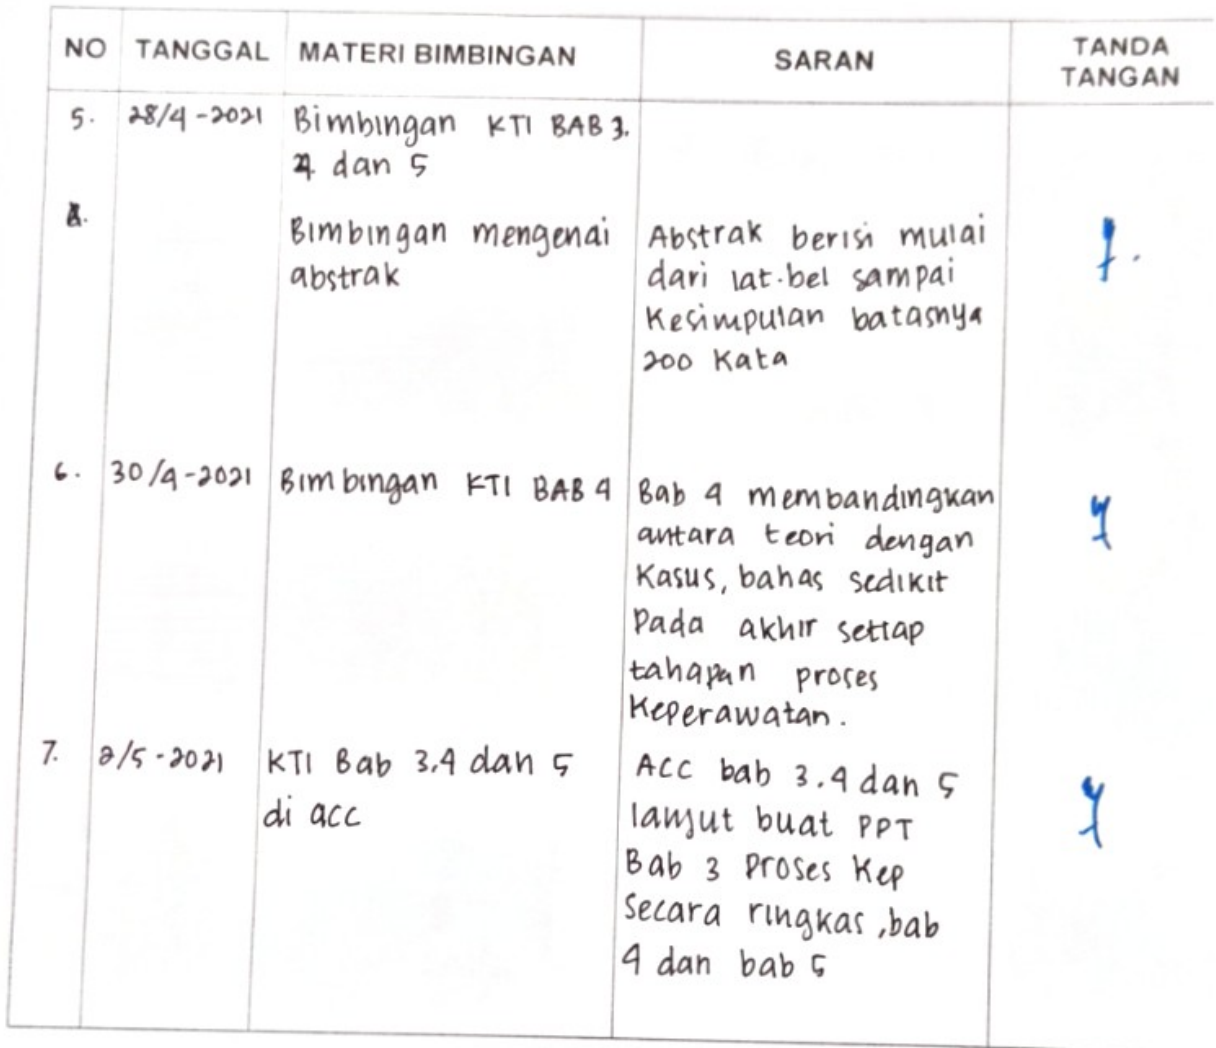 NO TANGGAL MATERI BIMBINGAN SARAN TANDA
TANGAN
5. 28/4-2021 Bimbingan KTI BAB 3.
4 dan 5
Bimbingan mengenai
abstrak
Abstrak berisi mulai
dari lat.bel sampai
Kesimpulan batasnya
200 Kata
6. 30/4-2021 Bimbingan KTI BAB 4
Bab 4 membandingkan
antara teori dengan
Kasus, bahas sedikit
Pada akhir setiap
tahapan proses
Keperawatan.
7. 2/5-2021 KTI Bab 3.4 dan 5
di acc
ACC bab 3.4 dan 5
lanjut buat PPT
Bab 3 Proses Kep
Secara ringkas, bab
4 dan bab 5